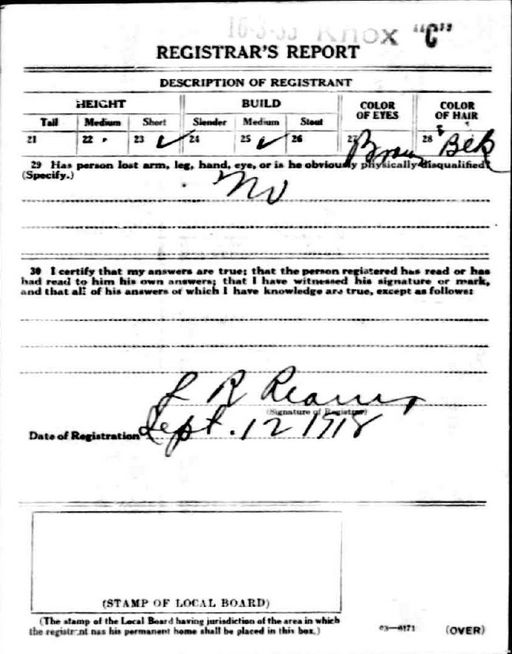 16-3-33 Knox "C"
REGISTRAR'S REPORT
DESCRIPTION OF REGISTRANT
HEIGHT BUILD COLOR OF EYES COLOR OF HAIR
Tall Medium Short Slender Medium Stout
21 22 23 ✓ 24 25 ✓ 26 27 Brown 28 Blk
29 Has person lost arm, leg, hand, eye, or is he obviously physically disqualified?
(Specify.)
No
30 I certify that my answers are true; that the person registered has read or has
had read to him his own answers; that I have witnessed his signature or mark,
and that all of his answers of which I have knowledge are true, except as follows:
L R Reams
(Signature of Registrar)
Date of Registration Sept. 12 1918
(STAMP OF LOCAL BOARD)
(The stamp of the Local Board having jurisdiction of the area in which
the registrant has his permanent home shall be placed in this box.)
03—6171 (OVER)